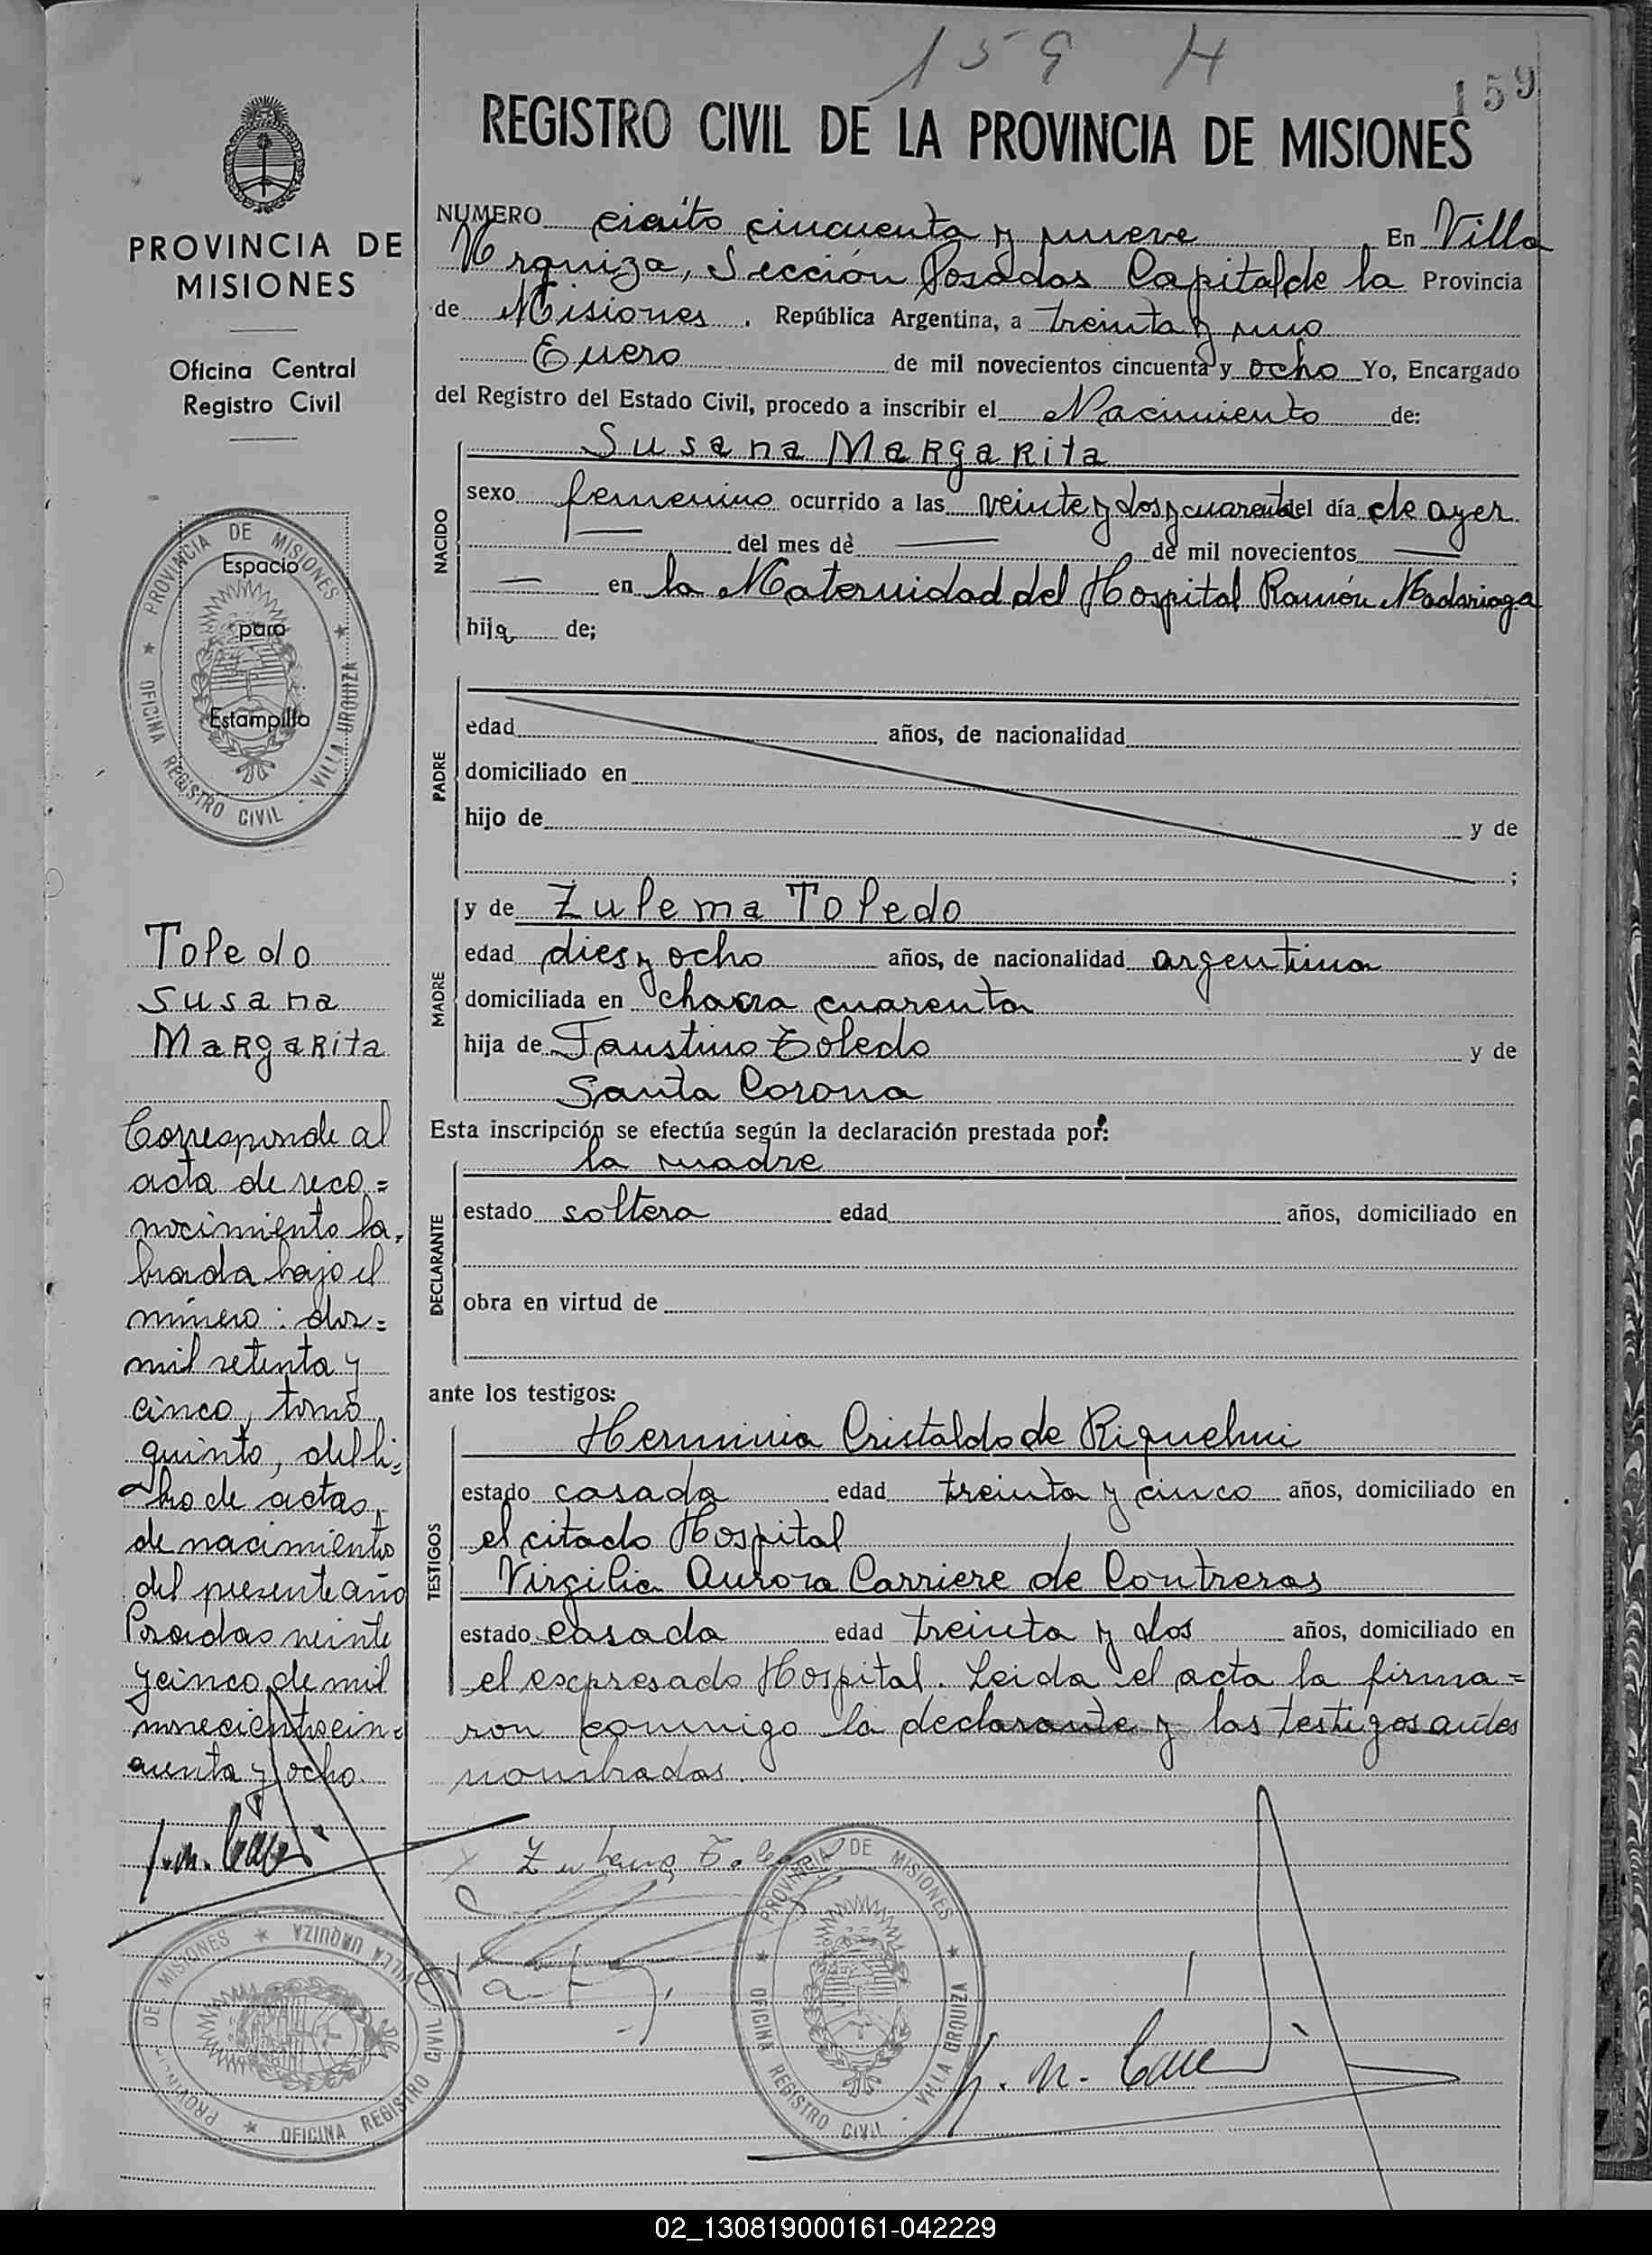 159 H
159
REGISTRO CIVIL DE LA PROVINCIA DE MISIONES
PROVINCIA DE
MISIONES
Oficina Central
Registro Civil
PROVINCIA DE MISIONES
OFICINA REGISTRO CIVIL - VILLA URQUIZA
Espacio
para
Estampilla
Toledo
Susana
Margarita
Corresponde al
acta de reco=
nocimiento la,
brada bajo el
número: dos=
mil setenta y
cinco, tomo
quinto, del li=
bro de actas
de nacimiento
del presente año
Posadas veinte
y cinco de mil
novecientos cin=
cuenta y ocho.
NUMERO ciento cincuenta y nueve En Villa
Urquiza, Sección Posadas Capital de la Provincia
de Misiones. República Argentina, a treinta y uno
Enero de mil novecientos cincuenta y ocho Yo, Encargado
del Registro del Estado Civil, procedo a inscribir el Nacimiento de:
NACIDO
Susana Margarita
sexo femenino ocurrido a las veinte y dos y cuarenta del día de ayer
del mes de — de mil novecientos —
— en la Maternidad del Hospital Ramón Madariaga
hija de;
PADRE
edad años, de nacionalidad
domiciliado en
hijo de y de
;
MADRE
y de Zulema Toledo
edad dies y ocho años, de nacionalidad argentina
domiciliada en chacra cuarenta
hija de Faustino Toledo y de
Santa Corona
Esta inscripción se efectúa según la declaración prestada por:
DECLARANTE
la madre
estado soltera edad años, domiciliado en
obra en virtud de
ante los testigos:
TESTIGOS
Herminia Cristaldo de Riquelmi
estado casada edad treinta y cinco años, domiciliado en
el citado Hospital
Virgilia Aurora Carriere de Contreras
estado casada edad treinta y dos años, domiciliado en
el expresado Hospital. Leida el acta la firma=
ron conmigo la declarante y los testigos antes
nombrados.
PROVINCIA DE MISIONES
OFICINA REGISTRO CIVIL - VILLA URQUIZA
PROVINCIA DE MISIONES
OFICINA REGISTRO CIVIL VILLA URQUIZA
02_130819000161-042229